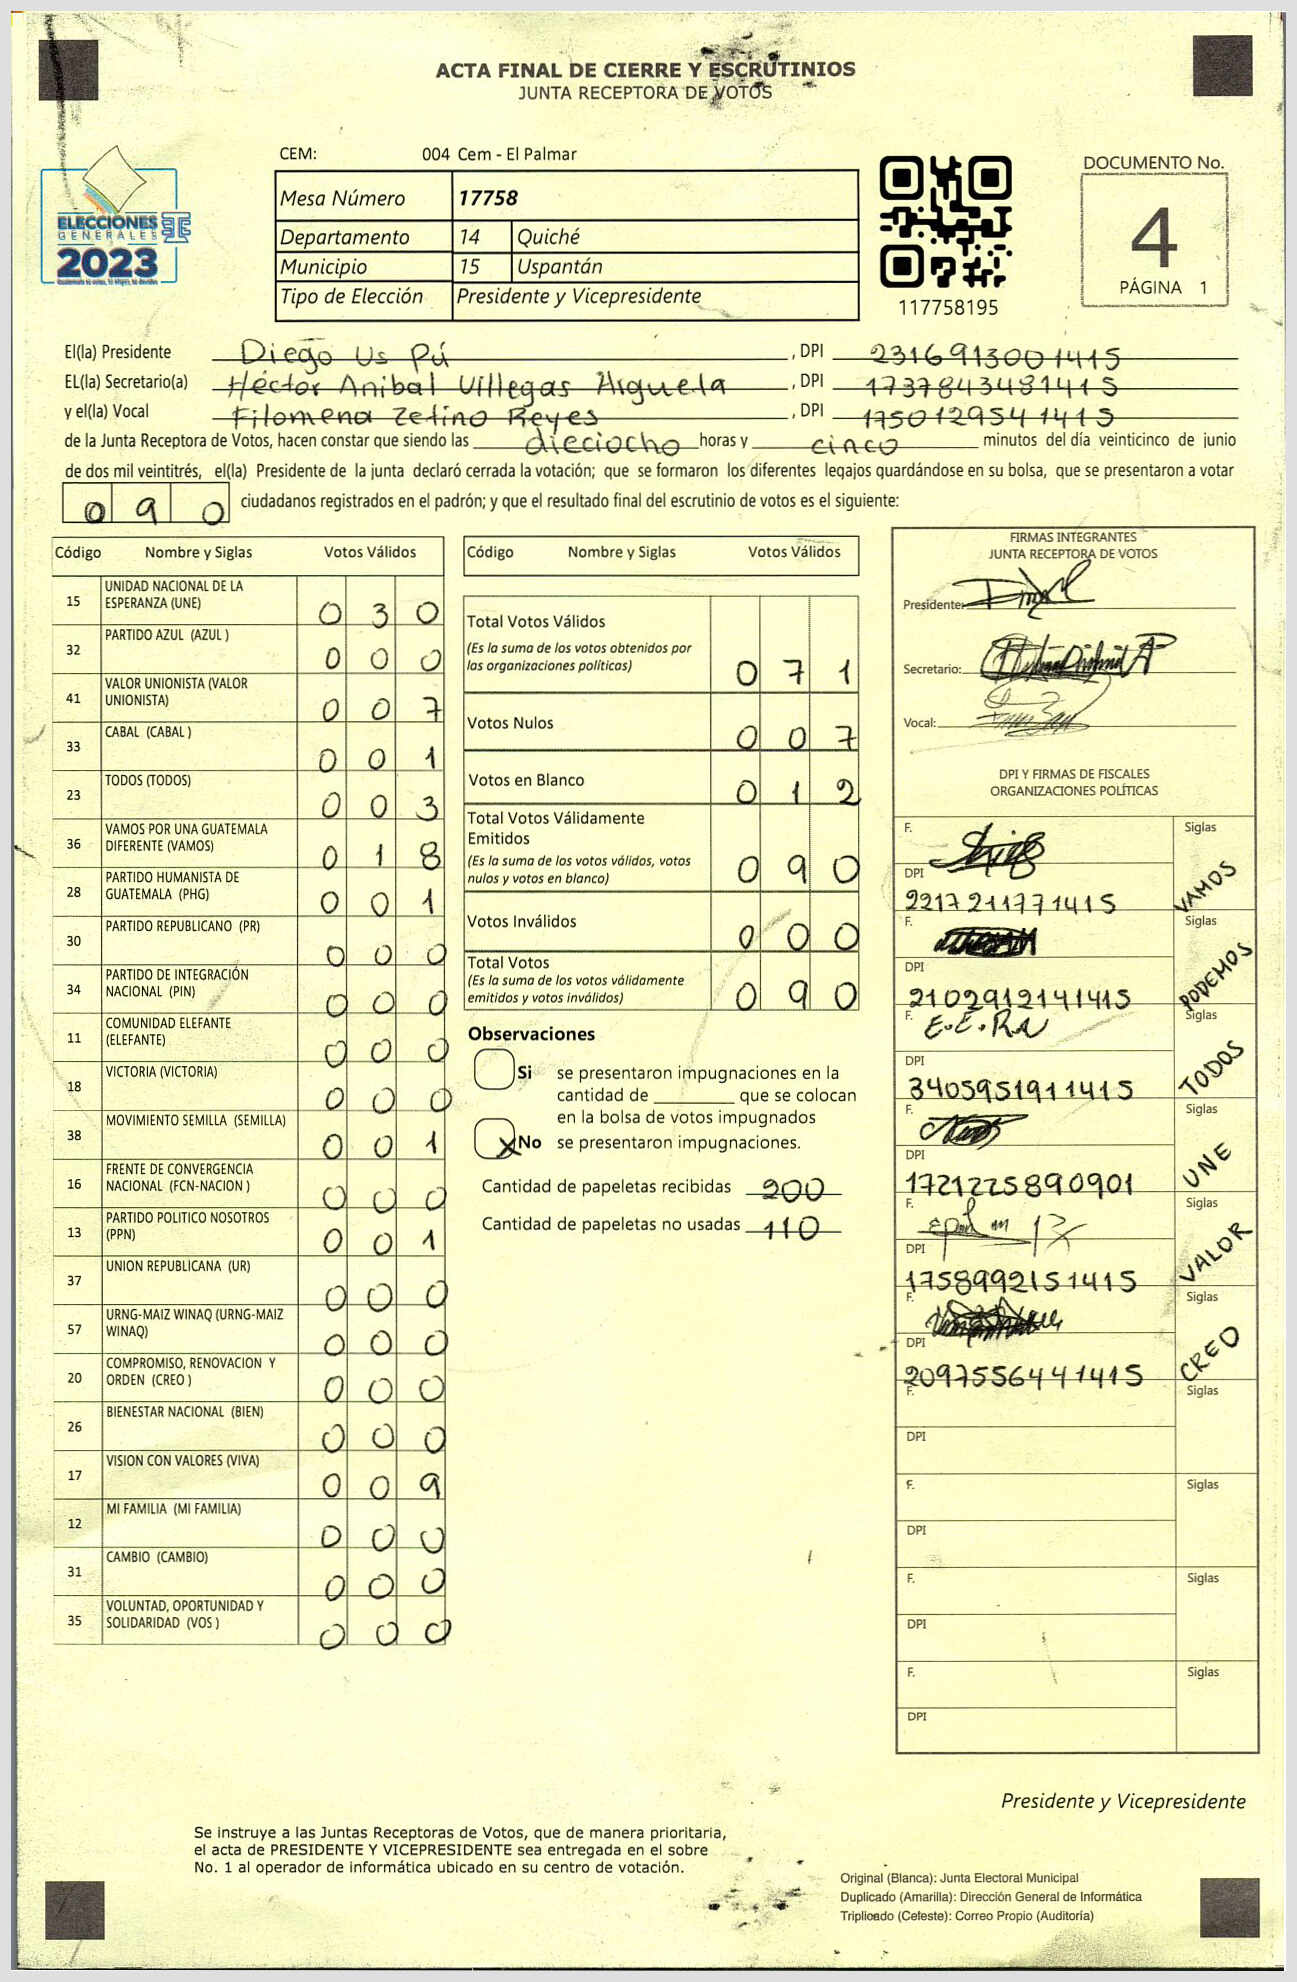 ACTA FINAL DE CIERRE Y ESCRUTINIOS
JUNTA RECEPTORA DE VOTOS
CEM: 004 Cem - El Palmar
ELECCIONES
GENERALES
2023
Mesa Número 17758
Departamento 14 Quiché
Municipio 15 Uspantán
Tipo de Elección Presidente y Vicepresidente
117758195
DOCUMENTO No.
4
PÁGINA 1
El(la) Presidente Diego Us Pú , DPI 2316913001415
EL(la) Secretario(a) Héctor Anibal Villegas Argueta , DPI 1737843481415
y el(la) Vocal Filomena Zetino Reyes , DPI 1750129541415
de la Junta Receptora de Votos, hacen constar que siendo las dieciocho horas y cinco minutos del día veinticinco de junio
de dos mil veintitrés, el(la) Presidente de la junta declaró cerrada la votación; que se formaron los diferentes legajos quardándose en su bolsa, que se presentaron a votar
090 ciudadanos registrados en el padrón; y que el resultado final del escrutinio de votos es el siguiente:
Código Nombre y Siglas Votos Válidos
15 UNIDAD NACIONAL DE LA ESPERANZA (UNE) 0 3 0
32 PARTIDO AZUL (AZUL ) 0 0 0
41 VALOR UNIONISTA (VALOR UNIONISTA) 0 0 7
33 CABAL (CABAL ) 0 0 1
23 TODOS (TODOS) 0 0 3
36 VAMOS POR UNA GUATEMALA DIFERENTE (VAMOS) 0 1 8
28 PARTIDO HUMANISTA DE GUATEMALA (PHG) 0 0 1
30 PARTIDO REPUBLICANO (PR) 0 0 0
34 PARTIDO DE INTEGRACIÓN NACIONAL (PIN) 0 0 0
11 COMUNIDAD ELEFANTE (ELEFANTE) 0 0 0
18 VICTORIA (VICTORIA) 0 0 0
38 MOVIMIENTO SEMILLA (SEMILLA) 0 0 1
16 FRENTE DE CONVERGENCIA NACIONAL (FCN-NACION ) 0 0 0
13 PARTIDO POLITICO NOSOTROS (PPN) 0 0 1
37 UNION REPUBLICANA (UR) 0 0 0
57 URNG-MAIZ WINAQ (URNG-MAIZ WINAQ) 0 0 0
20 COMPROMISO, RENOVACION Y ORDEN (CREO ) 0 0 0
26 BIENESTAR NACIONAL (BIEN) 0 0 0
17 VISION CON VALORES (VIVA) 0 0 9
12 MI FAMILIA (MI FAMILIA) 0 0 0
31 CAMBIO (CAMBIO) 0 0 0
35 VOLUNTAD, OPORTUNIDAD Y SOLIDARIDAD (VOS ) 0 0 0
Código Nombre y Siglas Votos Válidos
Total Votos Válidos 0 7 1
(Es la suma de los votos obtenidos por
las organizaciones políticas)
Votos Nulos 0 0 7
Votos en Blanco 0 1 2
Total Votos Válidamente
Emitidos 0 9 0
(Es la suma de los votos válidos, votos
nulos y votos en blanco)
Votos Inválidos 0 0 0
Total Votos 0 9 0
(Es la suma de los votos válidamente
emitidos y votos inválidos)
Observaciones
Si se presentaron impugnaciones en la
cantidad de ________ que se colocan
en la bolsa de votos impugnados
X No se presentaron impugnaciones.
Cantidad de papeletas recibidas 200
Cantidad de papeletas no usadas 110
FIRMAS INTEGRANTES
JUNTA RECEPTORA DE VOTOS
Presidente:
Secretario:
Vocal:
DPI Y FIRMAS DE FISCALES
ORGANIZACIONES POLÍTICAS
F. Siglas
DPI VAMOS
2217211771415
F. Siglas
DPI PODEMOS
2102912141415
F. E.E.R.N Siglas
DPI TODOS
3405951911415
F. Siglas
DPI UNE
1721225890901
F. Siglas
DPI VALOR
1758992151415
F. Siglas
DPI CREO
2097556441415
F. Siglas
DPI
F. Siglas
DPI
F. Siglas
DPI
F. Siglas
DPI
Presidente y Vicepresidente
Se instruye a las Juntas Receptoras de Votos, que de manera prioritaria,
el acta de PRESIDENTE Y VICEPRESIDENTE sea entregada en el sobre
No. 1 al operador de informática ubicado en su centro de votación.
Original (Blanca): Junta Electoral Municipal
Duplicado (Amarilla): Dirección General de Informática
Triplicado (Celeste): Correo Propio (Auditoría)